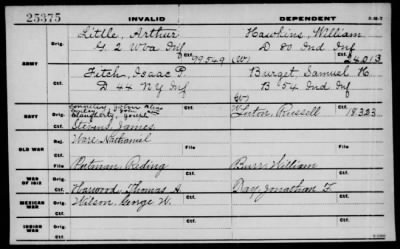 25375
INVALID
DEPENDENT
3-1617
ARMY
Orig.
Little, Arthur
G. 2 W Va Inf
Ctf.
99,549
Hawkins, William
D 80 Ind Inf
(W)
Ctf.
24,013
Orig.
Fitch, Isaac P.
D 44 N Y Inf
Ctf.
Burget, Samuel
B 54 Ind Inf
(W)
Ctf.
NAVY
Orig.
alias
Slaugherty, Joseph
Ctf.
Stevens, James
Linton, Russell
18323
Ctf.
OLD WAR
Orig.
Ware, Nathaniel
File
File
Ctf.
Putman, Reding
Burr, William
WAR OF 1812
Orig.
Ctf.
Harwood, Thomas A.
Ray, Jonathan F.
MEXICAN WAR
Orig.
Wilson, George W.
Ctf.
INDIAN WAR
Orig.
Ctf.